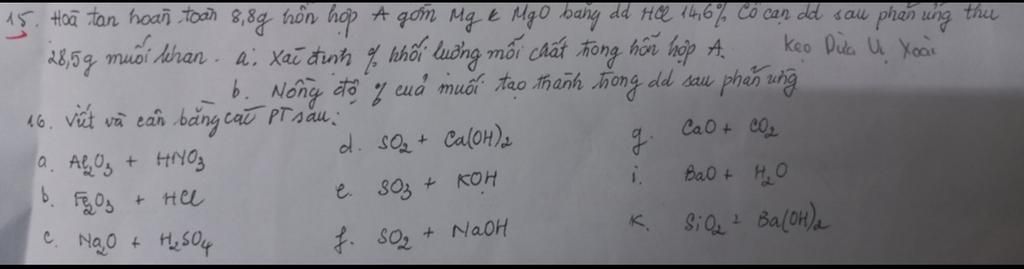 15. Hoà tan hoàn toàn 8,8g hỗn hợp A gồm Mg & MgO bằng dd HCl 14,6% Cô cạn dd sau phản ứng thu
28,5g muối khan. a: Xác định % khối lượng mỗi chất trong hỗn hợp A. Kẹo Dừa Vị Xoài
b. Nồng độ % của muối tạo thành trong dd sau phản ứng
16. Viết và cân bằng các PT sau:
a. Al2O3 + HNO3
b. Fe2O3 + HCl
c. Na2O + H2SO4
d. SO2 + Ca(OH)2
e. SO3 + KOH
f. SO2 + NaOH
g. CaO + CO2
i. BaO + H2O
K. SiO2 + Ba(OH)2